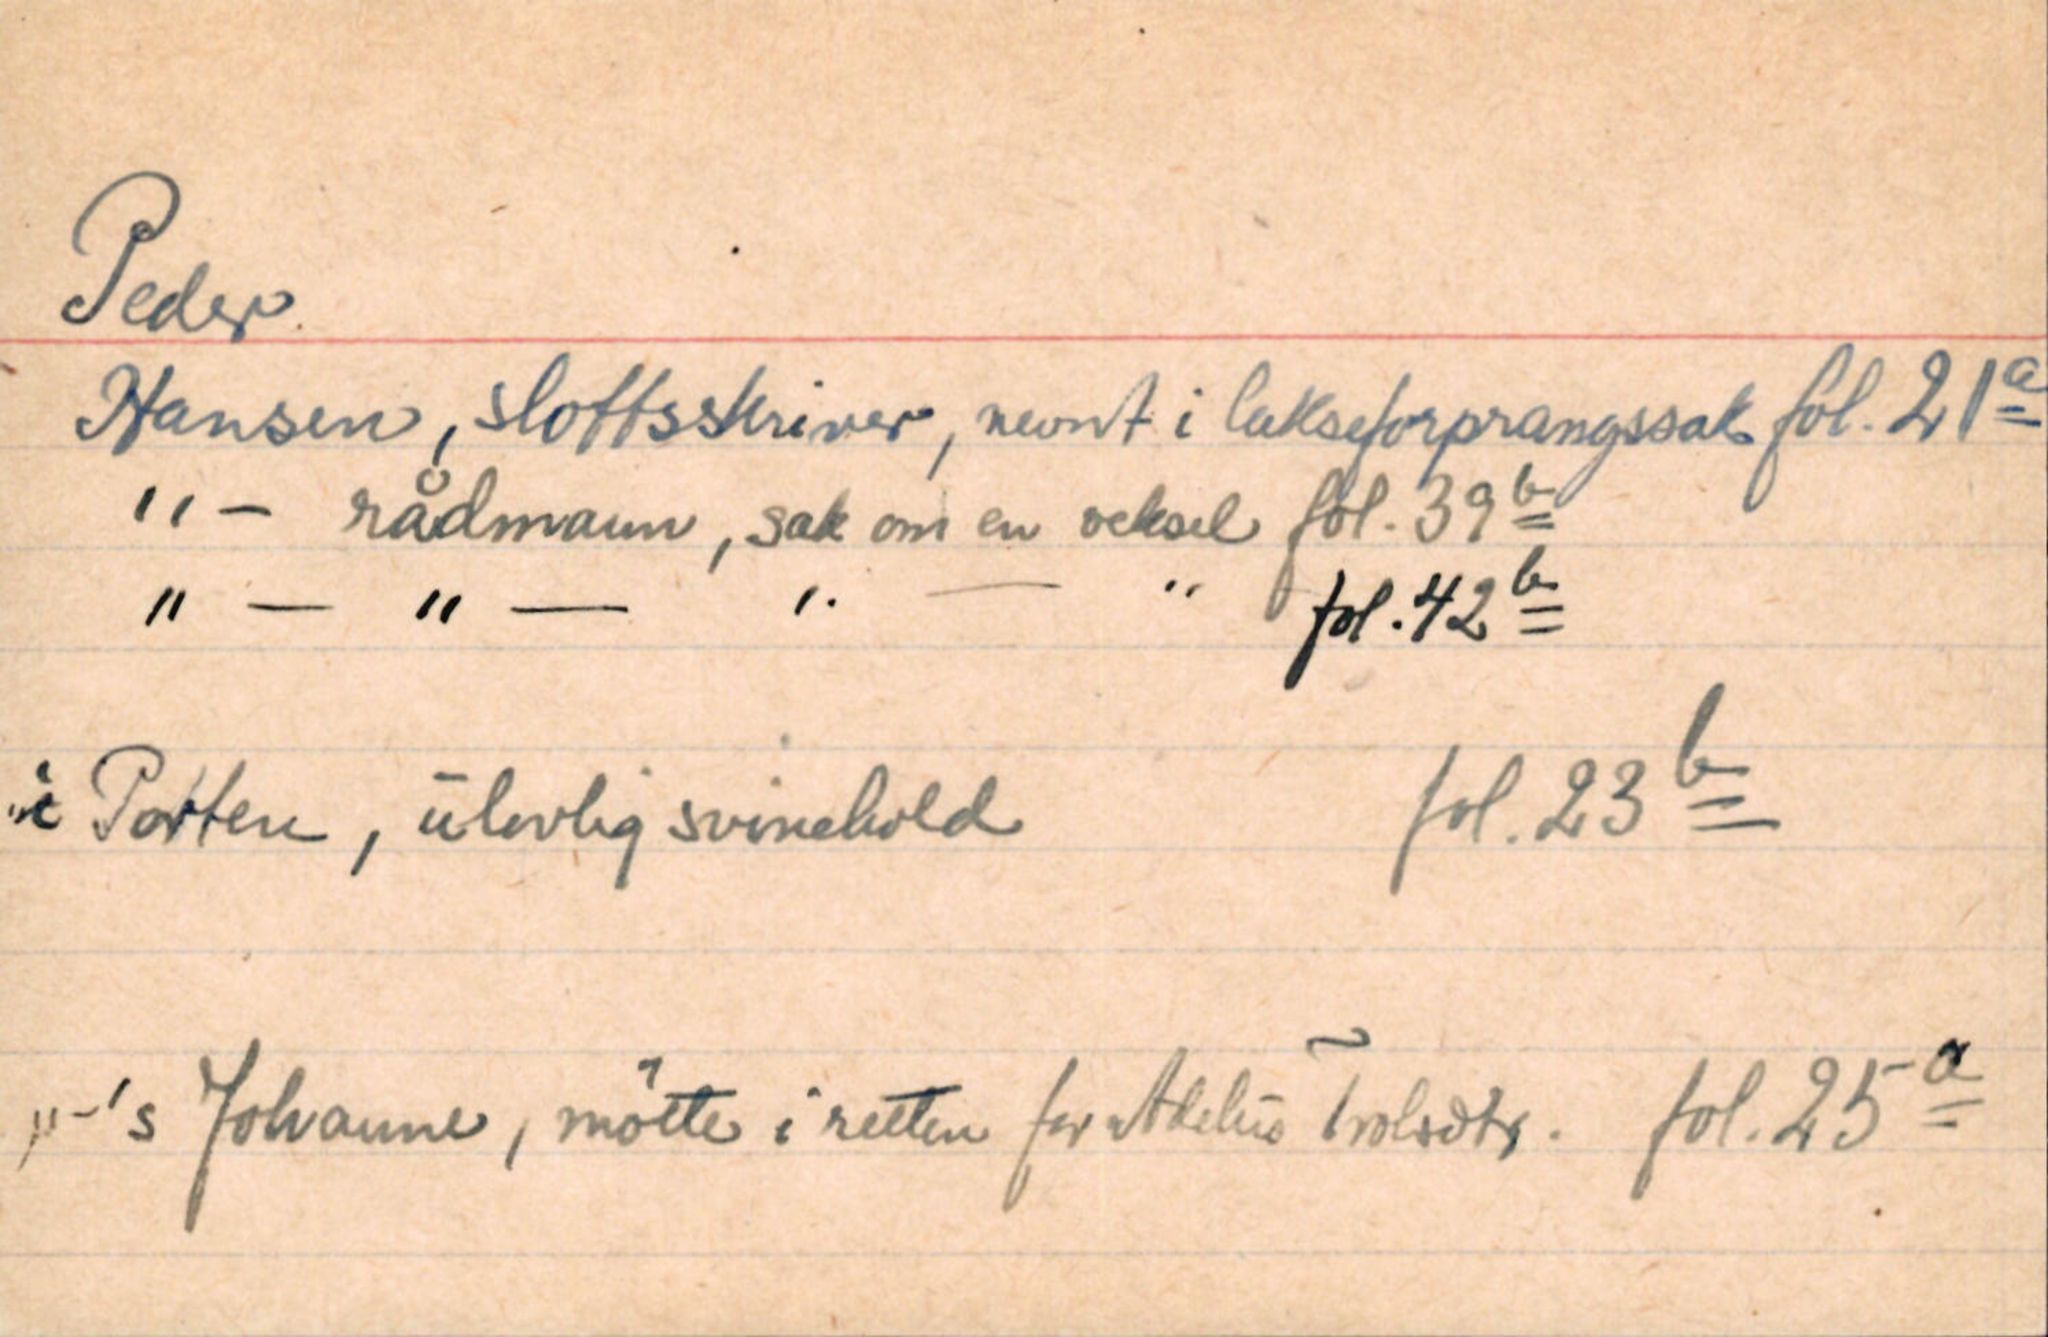 Peder
Hansen, slottsskriver, nevnt i lakseforprangssak fol. 21a
" - rådmann, sak om en veksel fol. 39b
" — " — " — " fol. 42b
i Porten, ulovlig svinehold fol. 23b
"-'s Johanne, mötte i retten for Adelus Trolsdtr. fol. 25a